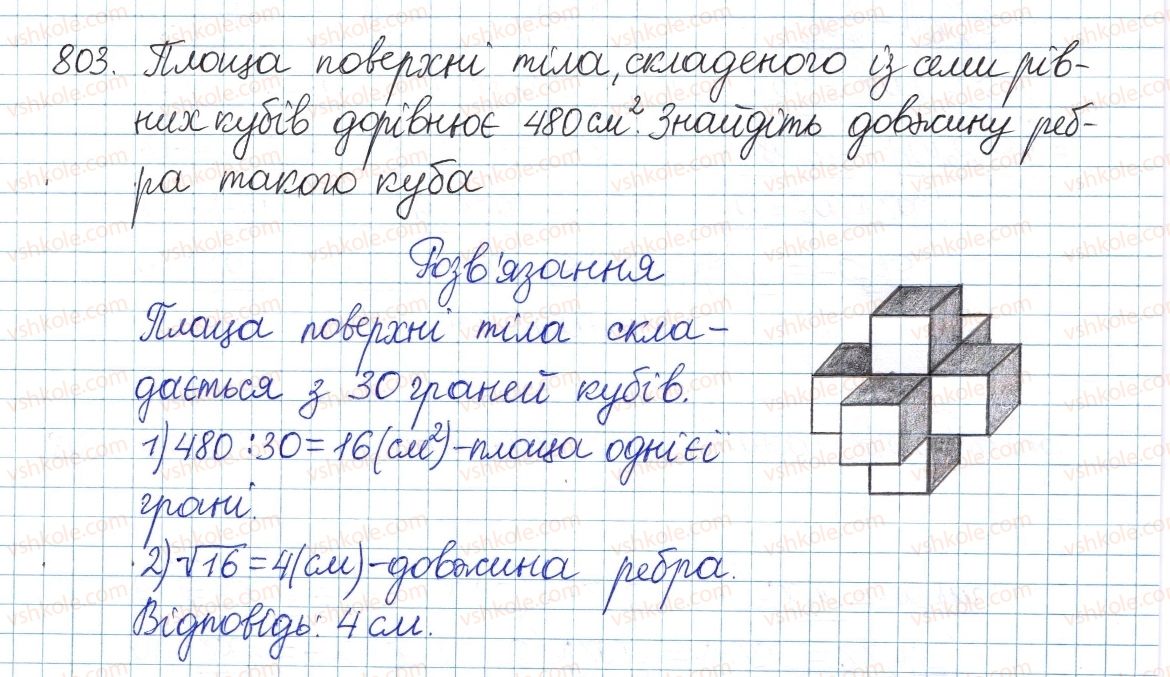 803. Площа поверхні тіла, складеного із семи рів-
них кубів дорівнює 480 см². Знайдіть довжину реб-
ра такого куба
Розв'язання
Площа поверхні тіла скла-
дається з 30 граней кубів.
1) 480 : 30 = 16 (см²) - площа однієї
грані.
2) √16 = 4 (см) - довжина ребра.
Відповідь: 4 см.